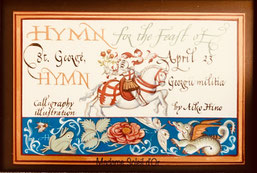 HYMN for the feast of
St. George, April 23
HYMN Georgic militia
Calligraphy
illustration by Aiko Hino